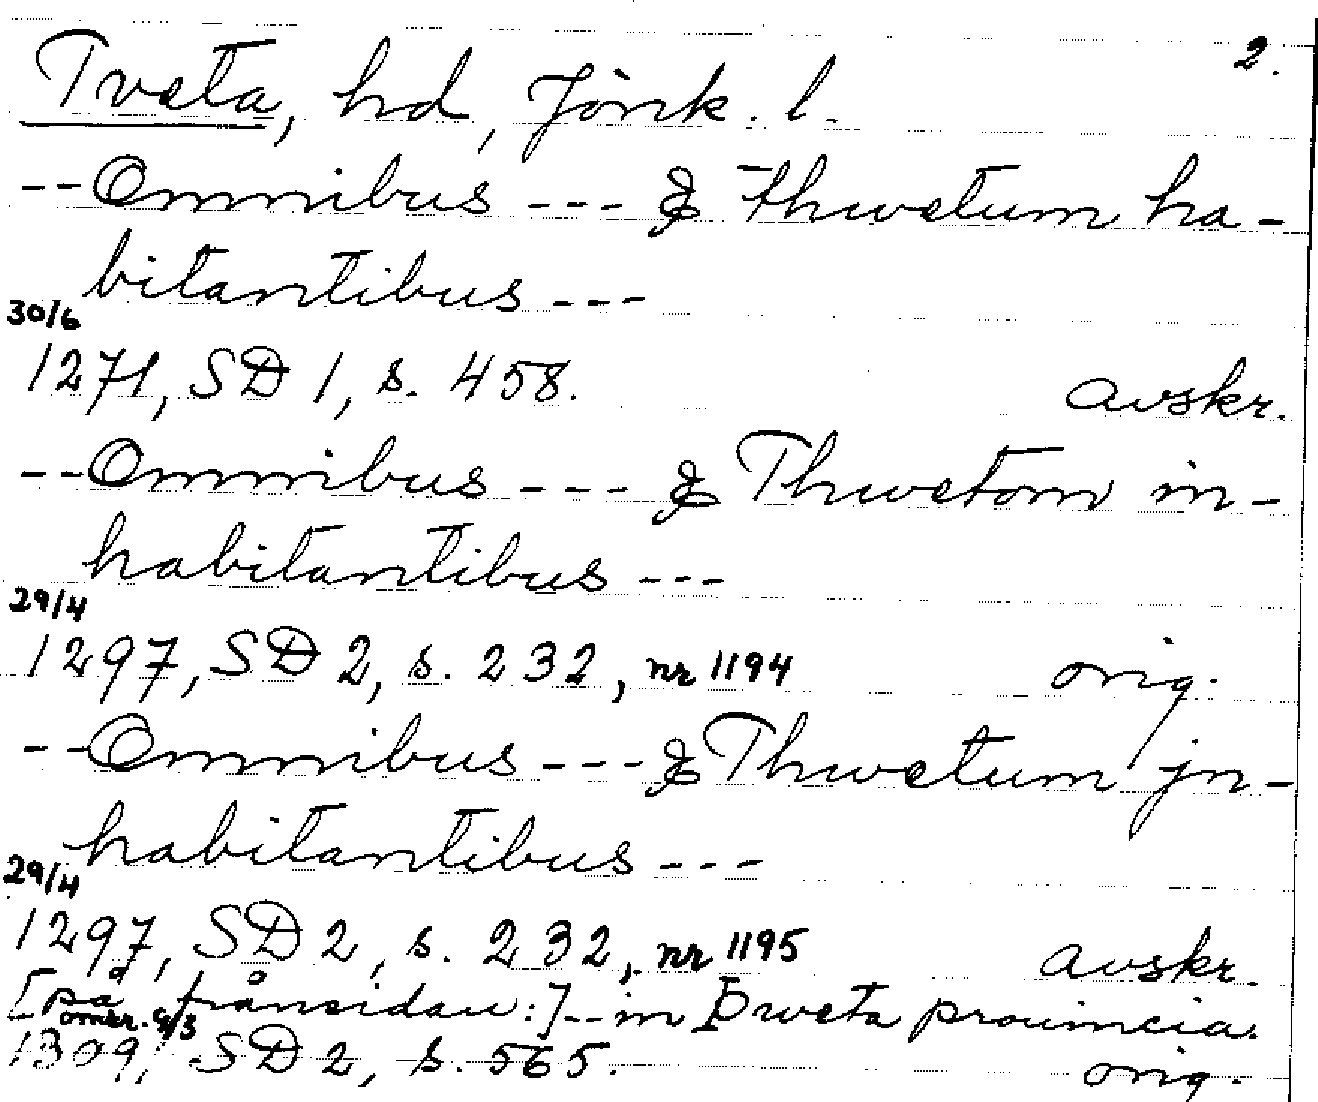 2.
Tveta, hd, Jönk. l.
--Omnibus --- & Thwetum ha-
bitantibus ---
30/6
1271, SD 1, s. 458. avskr.
--Omnibus --- & Thwetom in-
habitantibus ---
29/4
1297, SD 2, s. 232, nr 1194 orig.
--Omnibus --- & Thwetum jn-
habitantibus ---
29/4
1297, SD 2, s. 232, nr 1195 avskr.
[på frånsidan:]--in Þweta prouincia.
omkr. 9/3
1309, SD 2, s. 565. orig.